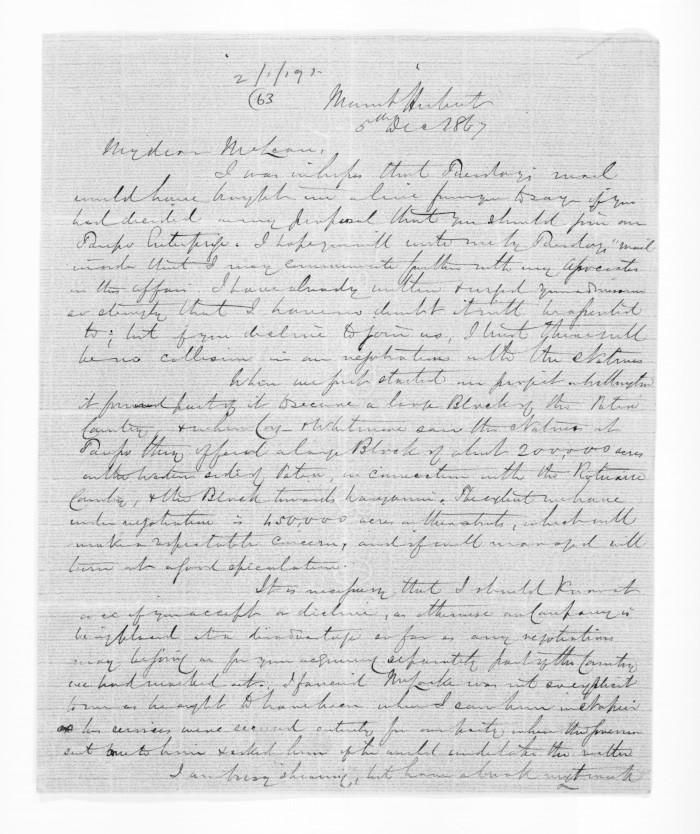 2/1/191.
(63
Mount Herbert
5th Dec 1867
My dear McLean,
I was in hopes that Tuesday's mail
would have brought me a line from you to say if you
had decided on my proposal that you should join our
Taupo Enterprise. I hope you will write me by Tuesday's mail
in order that I may communicate further with my Associates
in the affair. I have already written & urged your admission
so strongly that I have no doubt it will be assented
to; but if you decline to join us, I trust there will
be no collision in our negotiations with the Natives
When we first started our project in Wellington
it formed part of it to secure a large Block of the Patea
Country, & when Cox & Whitmore saw the Natives at
Taupo they offered a large Block of about 200,000 acres
on the western side of Patea, in connection with the
Country, & the Block towards . The extent we have
under negotiation is 450,000 acres or thereabouts, which will
make a respectable concern, and if well managed will
turn out a good speculation.
It is necessary that I should know at
once if you accept or decline, as otherwise our Company is
being placed at a disadvantage so far as any negotiations
may be going on for your acquiring separately part of the Country
we had reached at. I fancied Mr Locke was not so explicit
to me as he ought to have been when I saw him in Napier
as his services were secured entirely for our party when the Governor
sent to him & asked him if he would undertake the matter
I am busy shearing, but have a break next week